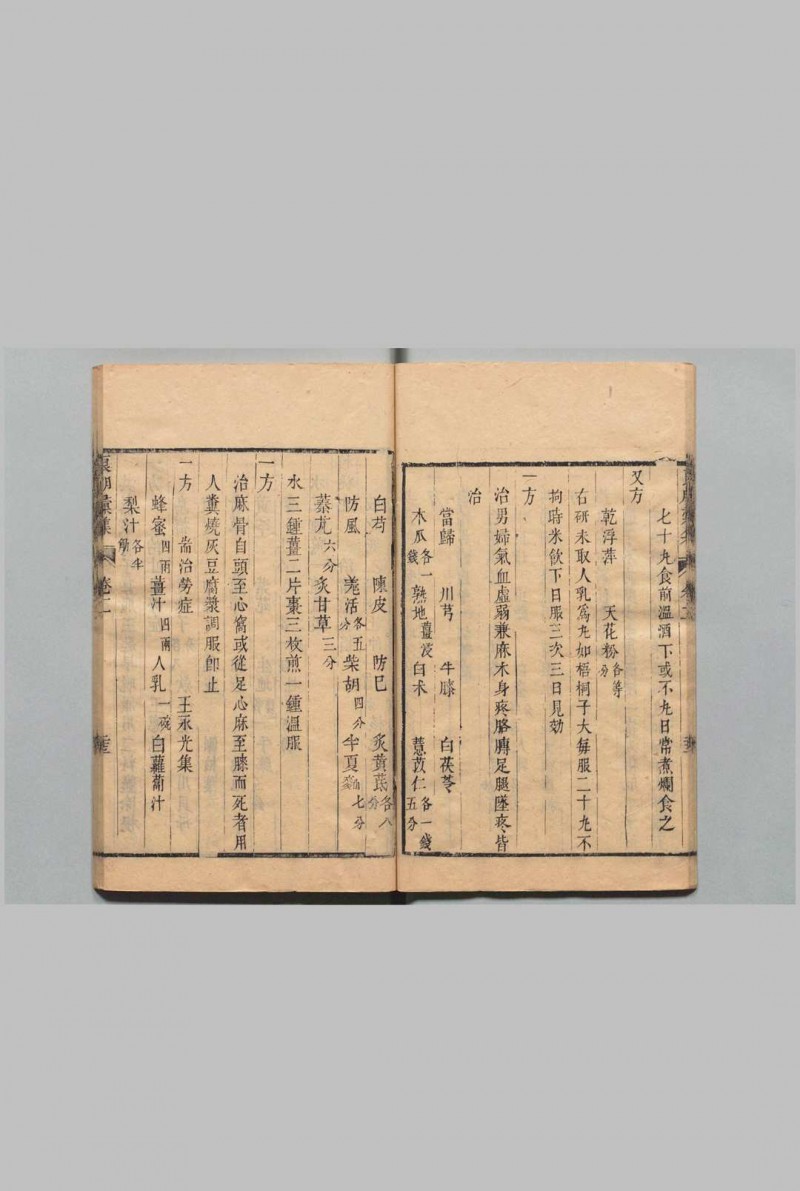 七十丸食前溫酒下或不丸日常煮爛食之
又方
乾浮萍 天花粉各等分
右研末取人乳為丸如梧桐子大每服二十丸不
拘時米飲下日服三次三日見効
一方
治男婦氣血虛弱兼麻木身疼胳膊足腿墜疼皆
治
當歸 川芎 牛膝 白茯苓
木瓜各一錢 熟地薑浸 白朮 薏苡仁各一錢五分
白芍 陳皮 防巳 炙黃茋各八分
防風 羗活各五分 柴胡四分 半夏曲七分
蓁艽六分 炙甘草三分
水三鍾薑二片棗三枚煎一鍾溫服
一方
治麻骨自頭至心窩或從足心麻至膝而死者用
人糞燒灰豆腐漿調服卽止
一方 耑治勞症 王永光集
蜂蜜四兩 薑汁四兩 人乳一碗 白蘿蔔汁
梨汁各半觔
卷二